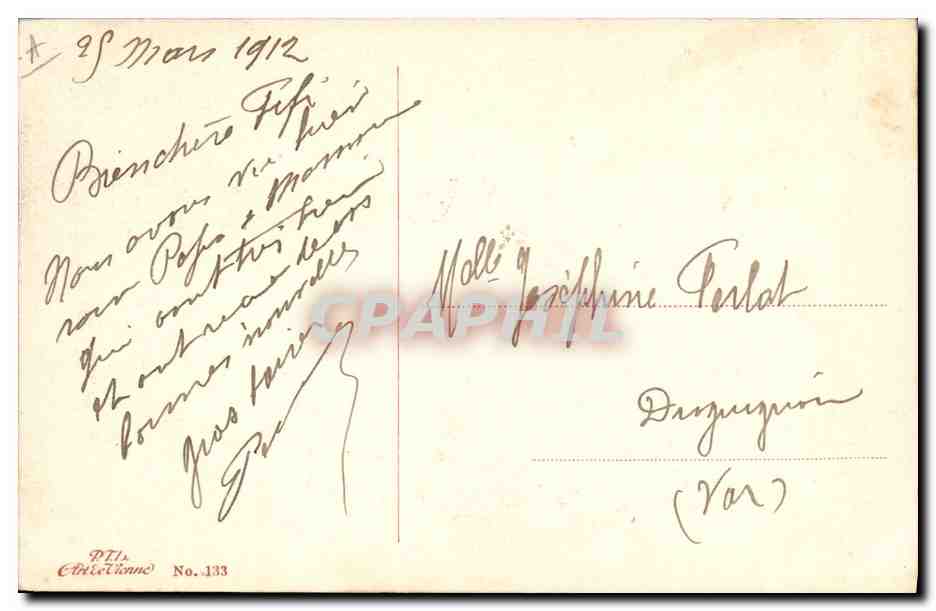 A
25 Mars 1912
Bien chère Fifi
Nous avons vu hier
ton Papa & Maman
qui vont très bien
et ont reçu de vos
bonnes nouvelles
gros baisers
Melle Joséphine Perlat
Draguignan
(Var)
CPAPHIL
Art de Vienne No. 133